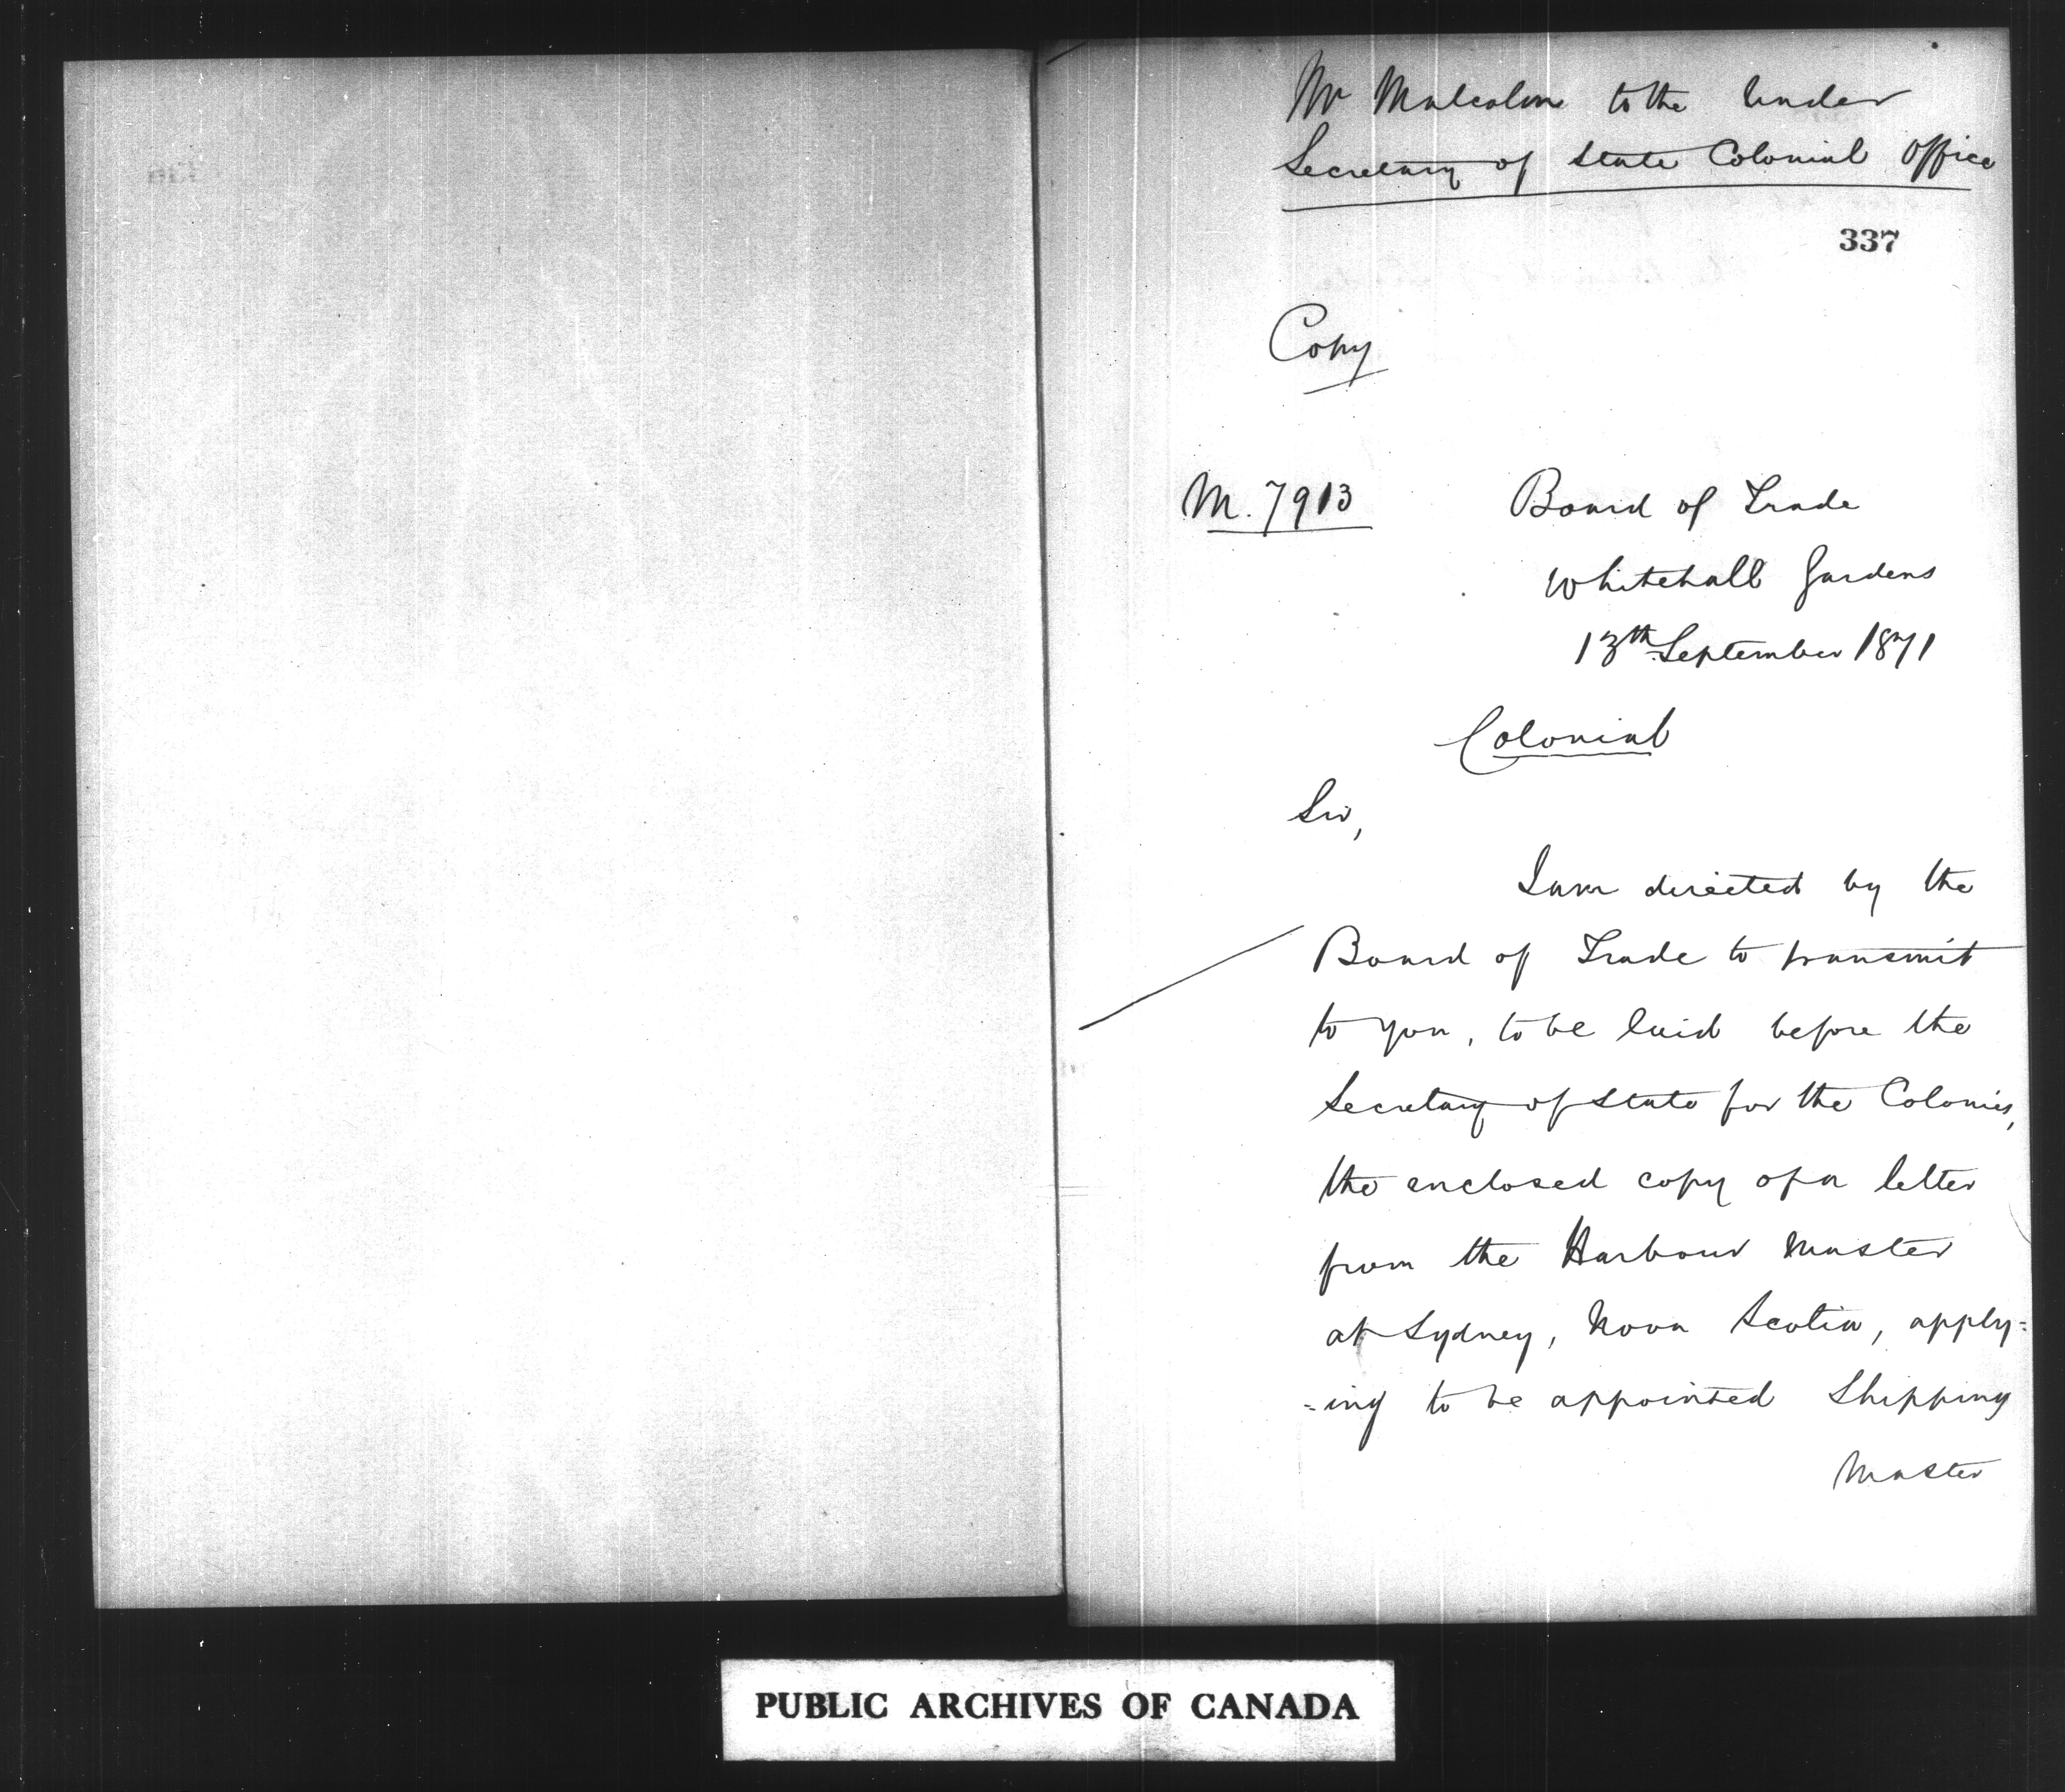 Mr Malcolm to the Under
Secretary of State Colonial Office
337
Copy
M. 7913
Board of Trade
Whitehall Gardens
13th September 1871
Colonial
Sir,
I am directed by the
Board of Trade to transmit
to you, to be laid before the
Secretary of State for the Colonies,
the enclosed copy of a letter
from the Harbour Master
at Sydney, Nova Scotia, apply=
=ing to be appointed Shipping
Master
PUBLIC ARCHIVES OF CANADA